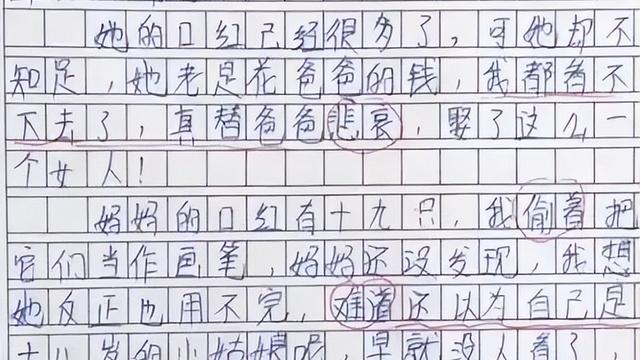 她的口红已经很多了，可她却不
知足，她老是花爸爸的钱，我都看不
下去了，真替爸爸悲哀，娶了这么一
个女人！
妈妈的口红有十九只，我偷着把
它们当作画笔，妈妈还没发现，我想
她反正也用不完，难道还以为自己是
十八岁的小姑娘呢，早就没人看了，